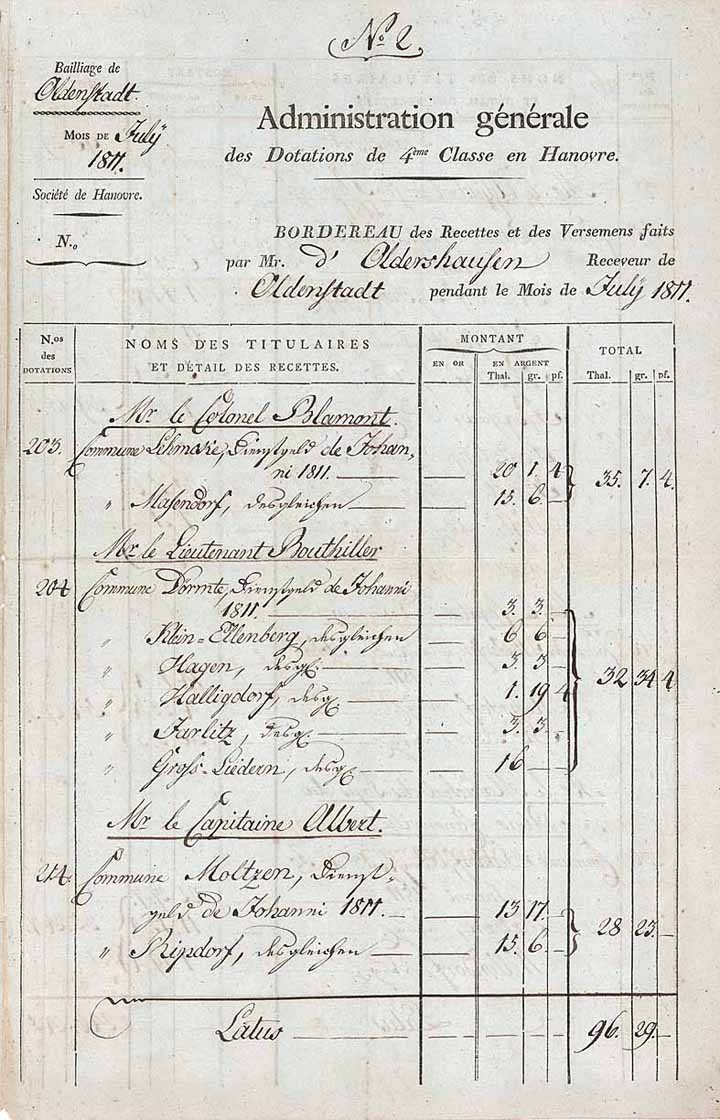 No. 2.
Bailliage de
Oldenstadt.
Mois de Julÿ
1811.
Société de Hanovre.
N.o
Administration générale
des Dotations de 4ème Classe en Hanovre.
BORDEREAU des Recettes et des Versemens faits
par Mr. d' Oldershausen Receveur de
Oldenstadt pendant le Mois de Julÿ 1811.
N.os des DOTATIONS
NOMS DES TITULAIRES ET DÉTAIL DES RECETTES.
MONTANT
EN OR
EN ARGENT
Thal. gr. pf.
TOTAL
Thal. gr. pf.
Mr. le Colonel Blamont.
203. Commune Lehmke, Dienstgeld de Johan-
ni 1811. — — 20 1. 4
" Masendorf, desgleichen — — 15. 6. — 35. 7. 4.
Mr. le Lieutenant Bouthiller
204 Commune Dörmte, Dienstgeld de Johanni
1811. — — 3. 3. —
" Klein-Ellenberg, desgleichen — 6 6. —
" Hagen, desgl. — — 3. 3 —
" Halligdorf, desgl. — — 1. 19 4 32 34 4
" Jarlitz, desgl. — — 3. 3. —
" Gross-Liedern, desgl. — — 16 — —
Mr. le Capitaine Albert.
214. Commune Moltzen, Dienst-
geld de Johanni 1811. — — 13 17. —
" Ripdorf, desgleichen — — 15. 6. — 28 23. —
Latus — — — 96. 29. —